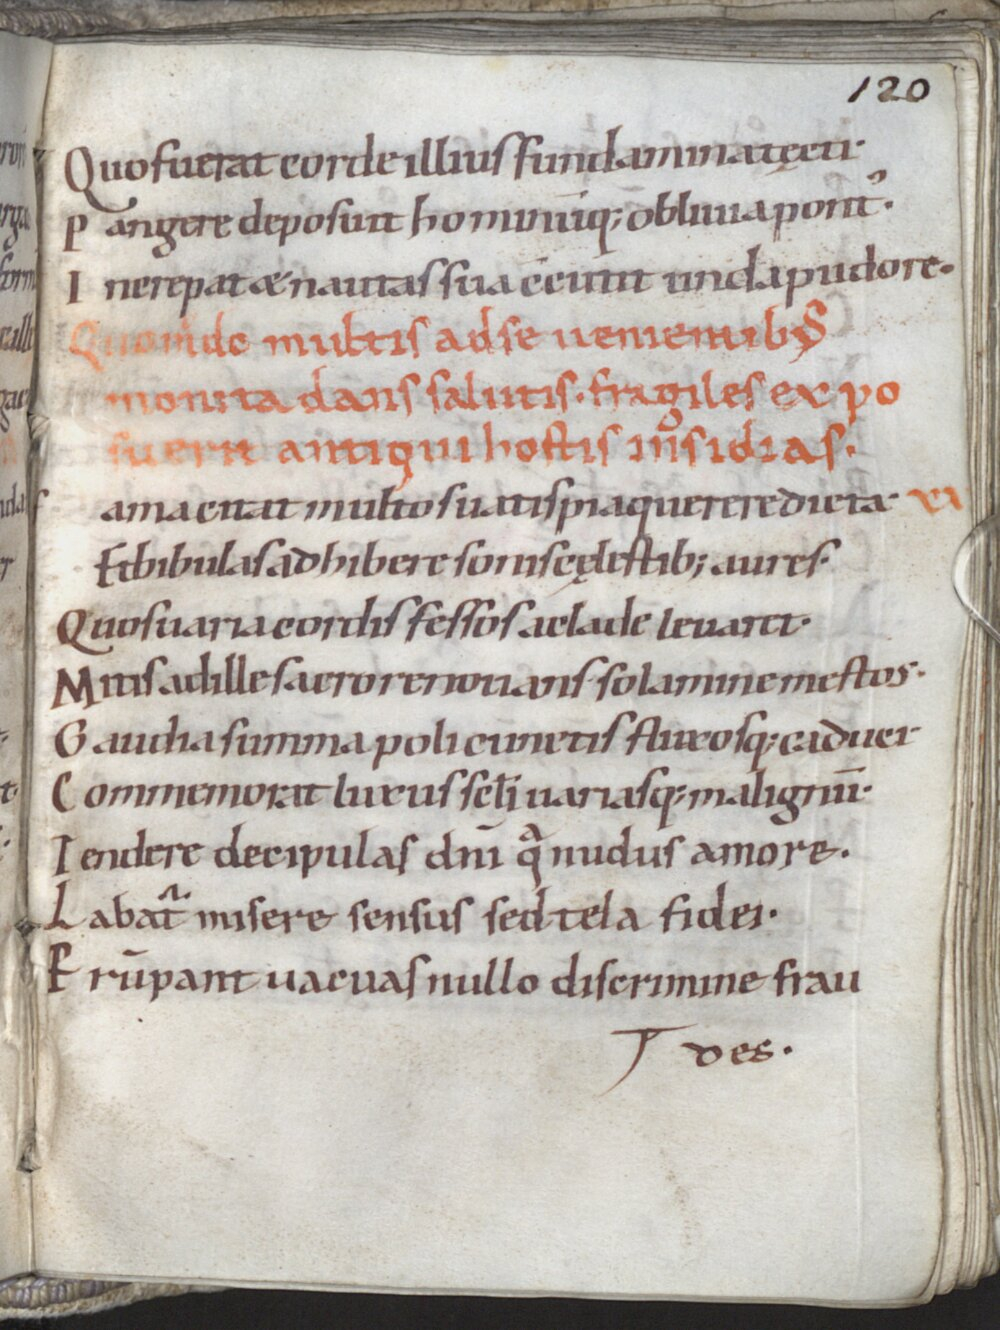 120
Quo fuerat corde illius fundamina tecti·
Pangere deposunt hominūq; obliuia pont᷒·
Increpat & nautas sua ceu sit unda pudore·
Quomdo multis ad se uenientibꝫ
monita dans salutis· fragiles expo
suerit antiqui hostis insidias·
ama citat multos uatis pia querere dicta· xi
Et bibulas adhibere sonis cęlestib; aures·
Quos uaria cordis fessos a clade leuaret·
Mitis ad ille sacro renouans solamine mestos·
Gaudia summa poli cunctis fluxosq; caduci
Commemorat luxus scłi uariasq; malignū·
Tendere decipulas dnī q̄ nudus amore·
Labat᷒ misere sensus sed tela fidei·
Erūpant uacuas nullo discrimine frau
des·